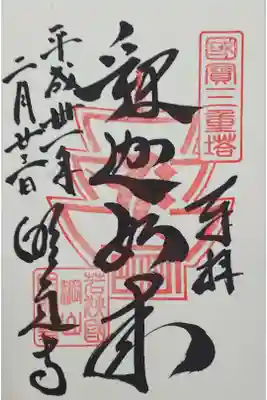 國寳三重塔
奉拝
釈迦如来
平成卅一年
二月廿三日
明通寺
若狭國
棡山